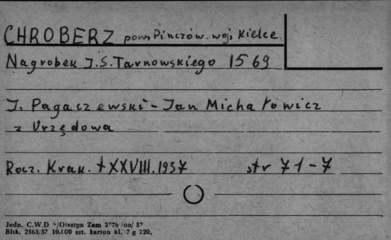 CHROBERZ pow. Pinczów. woj. Kielce.
Nagrobek J.S. Tarnowskiego 1569
J. Pagaczewski - Jan Michałowicz
z Urzędowa
Rocz. Krak. t XXVIII. 1937 str 71-7
Jedn. C.W.D
Błk. 2563/57 10.000 szt. karton kl. 7 g 220.